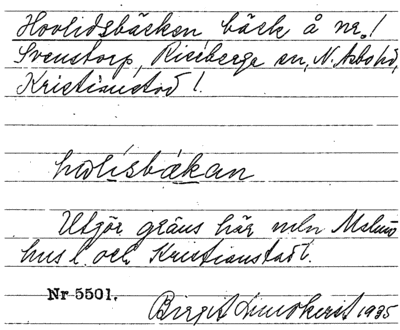 Hovlidsbäcken bäck å nr. 1
Svenstorp, Riseberga sn, N. Åsbo hd,
Kristianstad l.
hovlisbäkan
Utgör gräns här mln Malmö
hus l. och Kristianstad l.
Nr 5501.
Birgit Lundkvist 1935